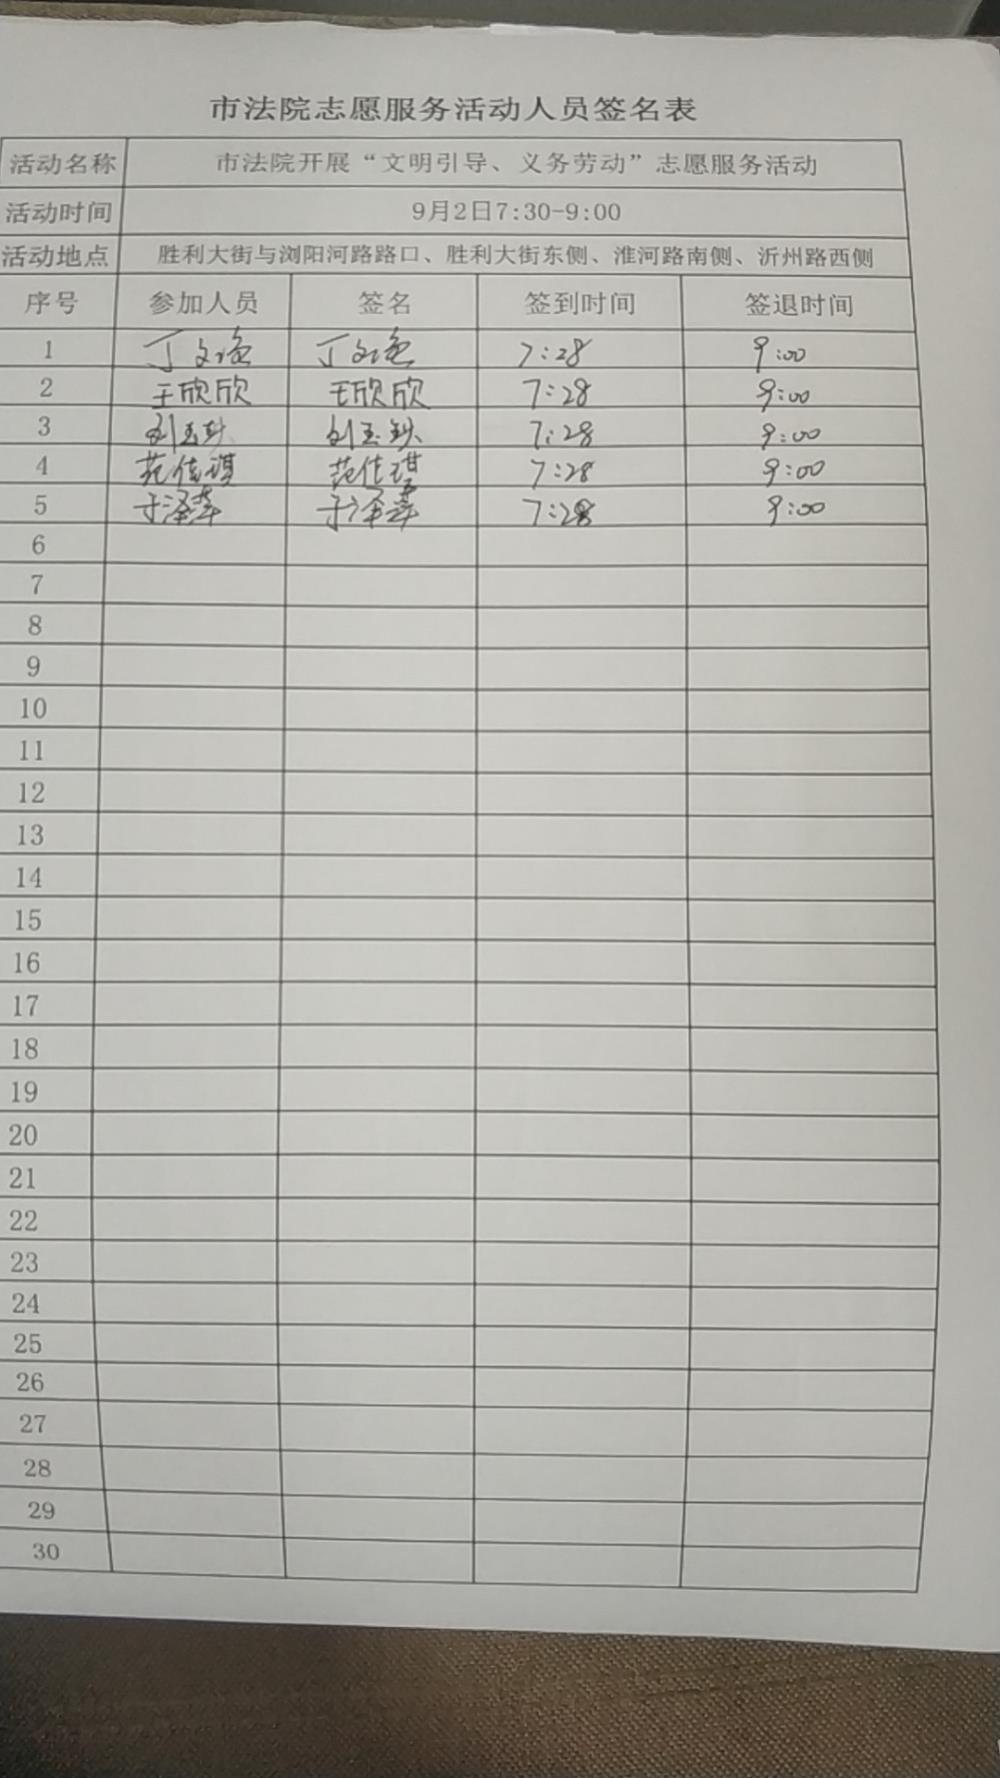 市法院志愿服务活动人员签名表
活动名称 市法院开展“文明引导、义务劳动”志愿服务活动
活动时间 9月2日7:30-9:00
活动地点 胜利大街与浏阳河路路口、胜利大街东侧、淮河路南侧、沂州路西侧
序号 参加人员 签名 签到时间 签退时间
1 丁文 丁文 7:28 9:00
2 王欣欣 王欣欣 7:28 9:00
3 刘玉 刘玉 7:28 9:00
4 范佳琪 范佳琪 7:28 9:00
5 于泽 于泽 7:28 9:00
6
7
8
9
10
11
12
13
14
15
16
17
18
19
20
21
22
23
24
25
26
27
28
29
30